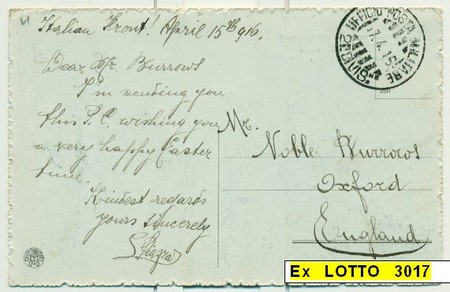 Italian Front! April 15th 916.
Dear Mr. Burrows
I'm sending you
this P.C. wishing you
a very happy Easter
time.
Kindest regards
yours sincerely
Mr.
Noble Burrows
Oxford
England
UFFICIO POSTA MILITARE
Ex LOTTO 3017